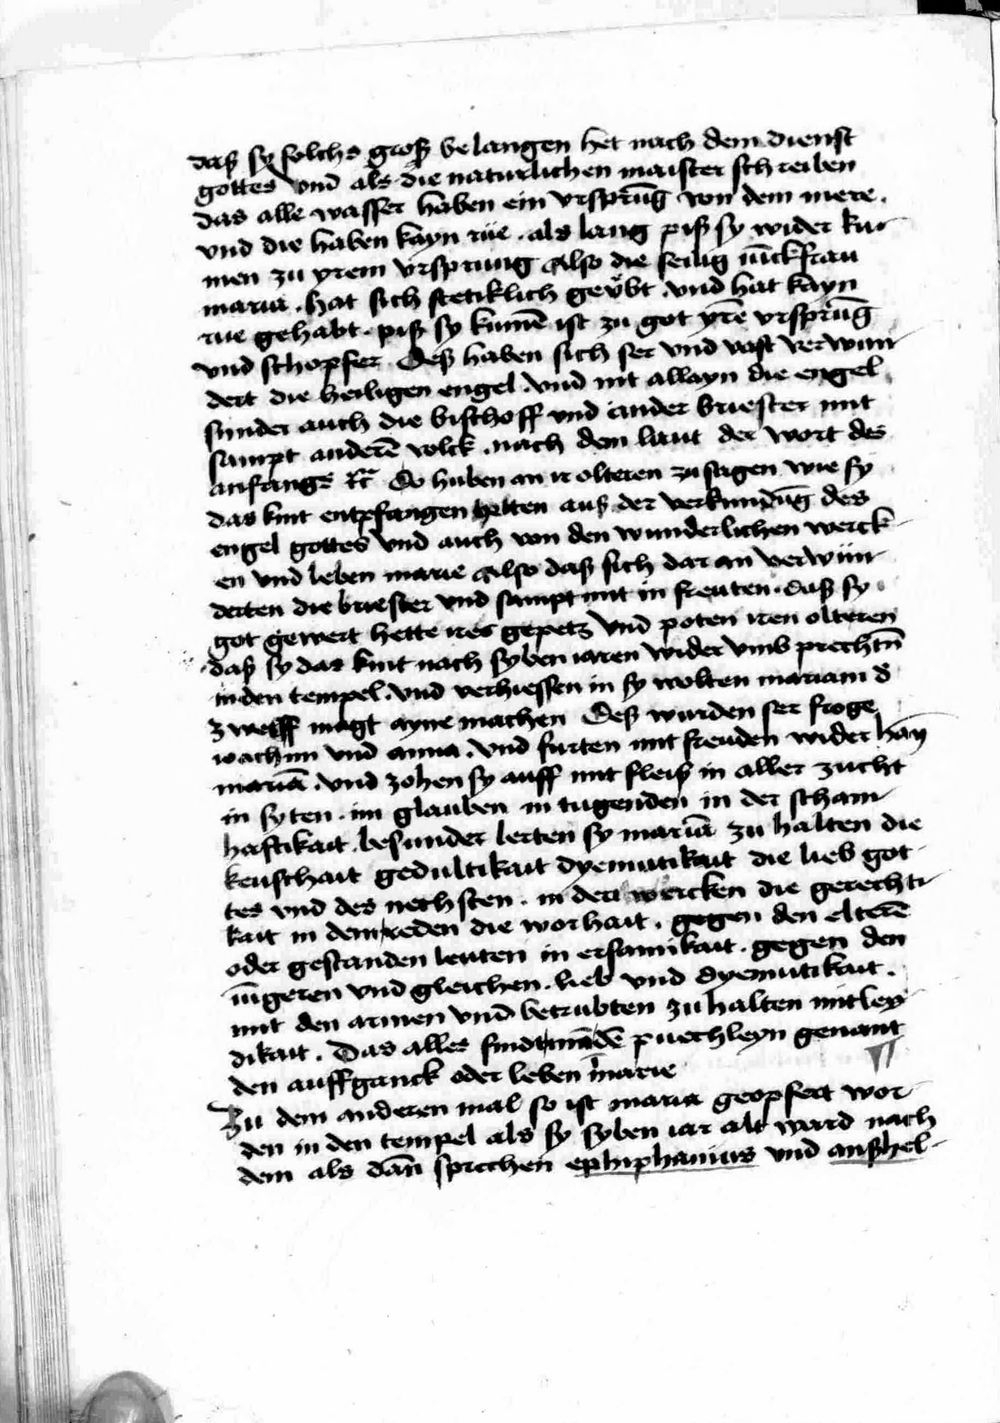 daß sy solchs groß belangen het nach dem dienst
gottes Vnd als die naturlichen maister schreiben
das alle wasser haben ein vrsprūg von dem mere.
vnd die haben kayn rüe. als lang piß sy wider ku-
men zu yrem vrsprung Also die selig iūckfrau
maria. hat sich stetiklich geübt. vnd hat kayn
rue gehabt. piß sy kumē ist zu got yrē vrsprūg
vnd schopfer. Deß haben sich ser vnd vast verwun-
dert die heiligen engel. vnd nit allayn die engel
sunder auch die bischoff vnd ander briester mit
sampt anderē volck. nach dem laut der wort des
anfangs Do huben an ir olteren zu sagen wie sy
das kint entpfangen hetten auß der verkundūg des
engel gottes Vnd auch von den wunderlichen werck-
en vnd leben marie Also daß sich dar an verwun-
derten die briester vnd sampt mit in freuten. daß sy
got gewert hette ires gepetz Vnd poten iren olteren
daß sy das kint nach syben iaren wider vmb prechtn̄
in den tempel. vnd verhiessen in sy wolten mariam d
zwelff magt ayne machen Deß wurden ser froge
ioachim vnd anna. vnd furten mit freuden wider haȳ
mariā. vnd zohen sy auff mit fleiß in aller zucht
in syten. im glauben in tugenden in der scham-
haftikait. besunder lerten sy mariā zu halten die
keuschait gedultikait dyemutikait die lieb got-
tes vnd des nechsten. in den wercken die gerechti-
kait in dem reden die worhait. gegen den elterē
oder gestanden leuten in ersamikait. gegen den
iūgeren vnd gleichen. lieb vnd dyemutikait.
mit den armen vnd betrubten zu halten mitley-
dikait. Das alles findt mā in dē puechleyn genant
den auffganck oder leben marie
Zu dem anderen mal so ist maria geopfert wor-
den in den tempel als sy syben iar alt ward nach
dem als dān sprechen ephiphanius vnd anßhel-